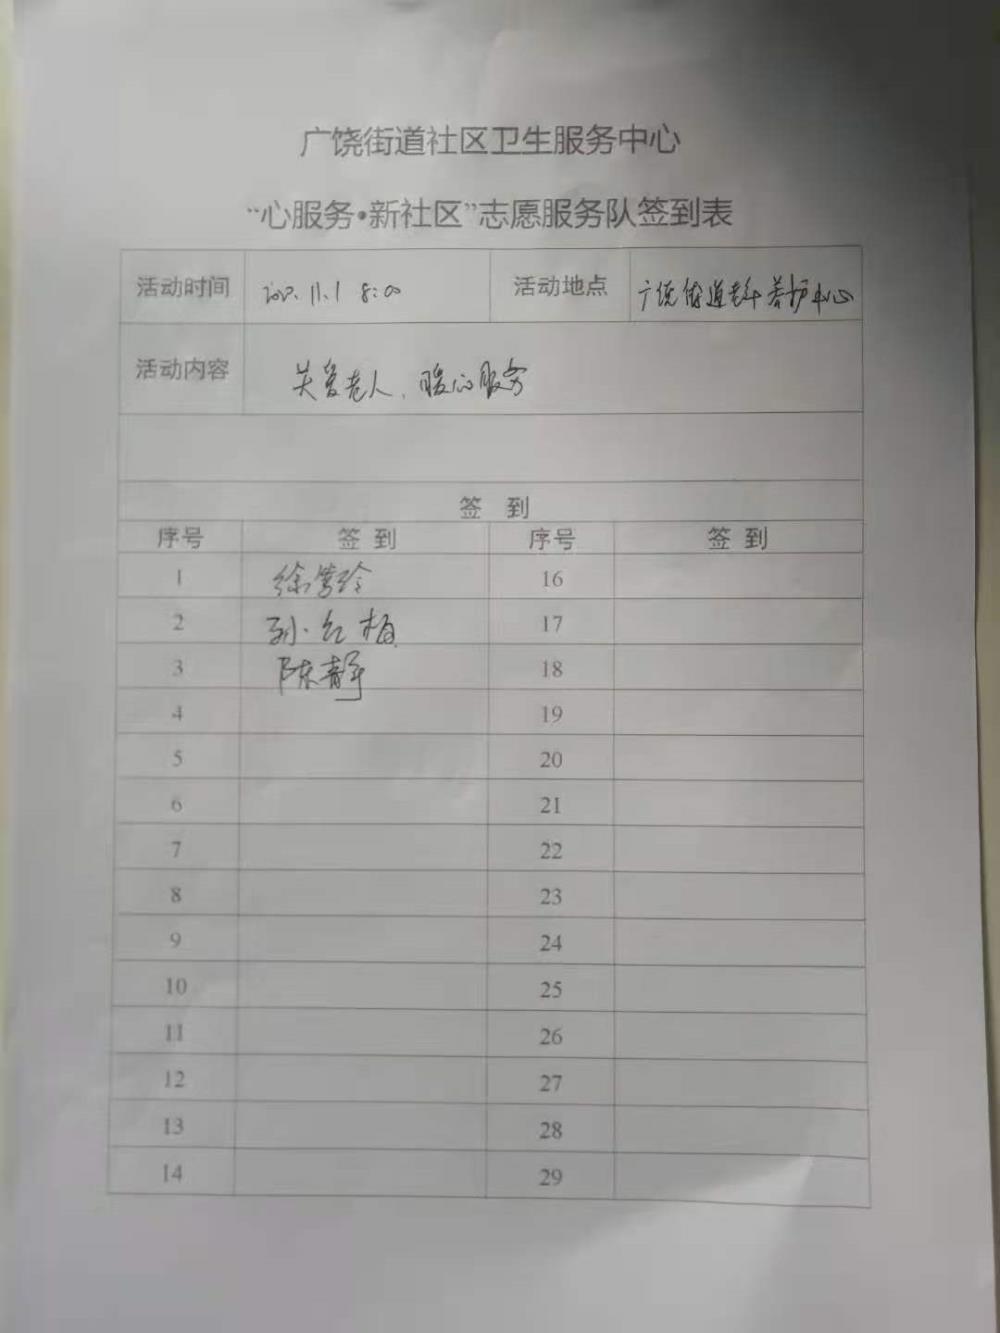 广饶街道社区卫生服务中心
“心服务•新社区”志愿服务队签到表
活动时间 11.1 8:00 活动地点 广饶街道老年养护中心
活动内容 关爱老人、暖心服务
签 到
序号 签 到 序号 签 到
1 徐 玲 16
2 孙红梅 17
3 陈静 18
4 19
5 20
6 21
7 22
8 23
9 24
10 25
11 26
12 27
13 28
14 29